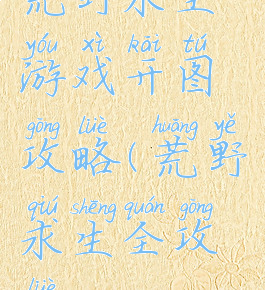 荒野求生
yóu xì kāi tú
游戏开图
gōng lüè huāng yě
攻略(荒野
qiú shēng quán gōng
求生全攻
lüè